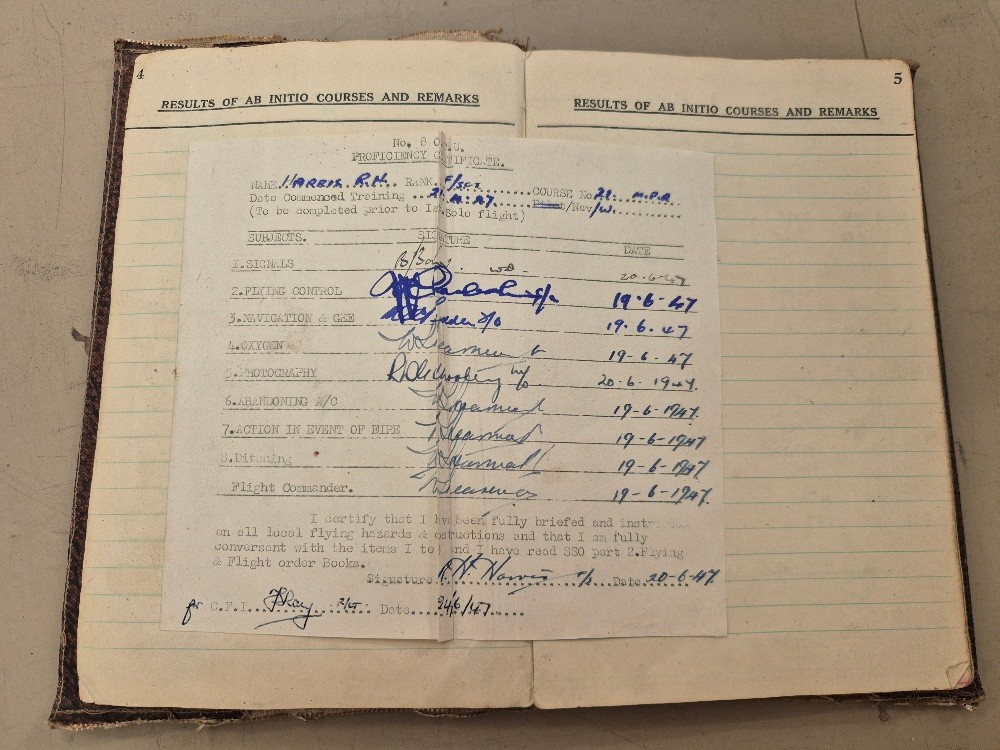 4
RESULTS OF AB INITIO COURSES AND REMARKS
5
RESULTS OF AB INITIO COURSES AND REMARKS
No. 8 O.C.U.
PROFICIENCY C TIFICATE.
NAME HARRIS. R.H. RANK F/SGT COURSE No 21. M.P.R
Date Commenced Training 21. 4. 47. Pilot/Nav/W.
(To be completed prior to 1st Solo flight)
SUBJECTS. SIGNATURE DATE
1.SIGNALS 20-6-47
2.FLYING CONTROL 19.6.47
3.NAVIGATION & GEE 19.6.47
4.OXYGEN 19-6-47
5.PHOTOGRAPHY 20.6.1947.
6.ABANDONING A/C 19-6-1947.
7.ACTION IN EVENT OF FIRE 19-6-1947
8.Ditching 19-6-1947
Flight Commander. 19-6-1947.
I certify that I have been fully briefed and instr
on all local flying hazards & obstructions and that I am fully
conversant with the items I to and I have read SSO part 2.Flying
& Flight order Books.
Signature R H Harris Date 20-6-47.
for C.F.I. F/LT Date 24/6/47